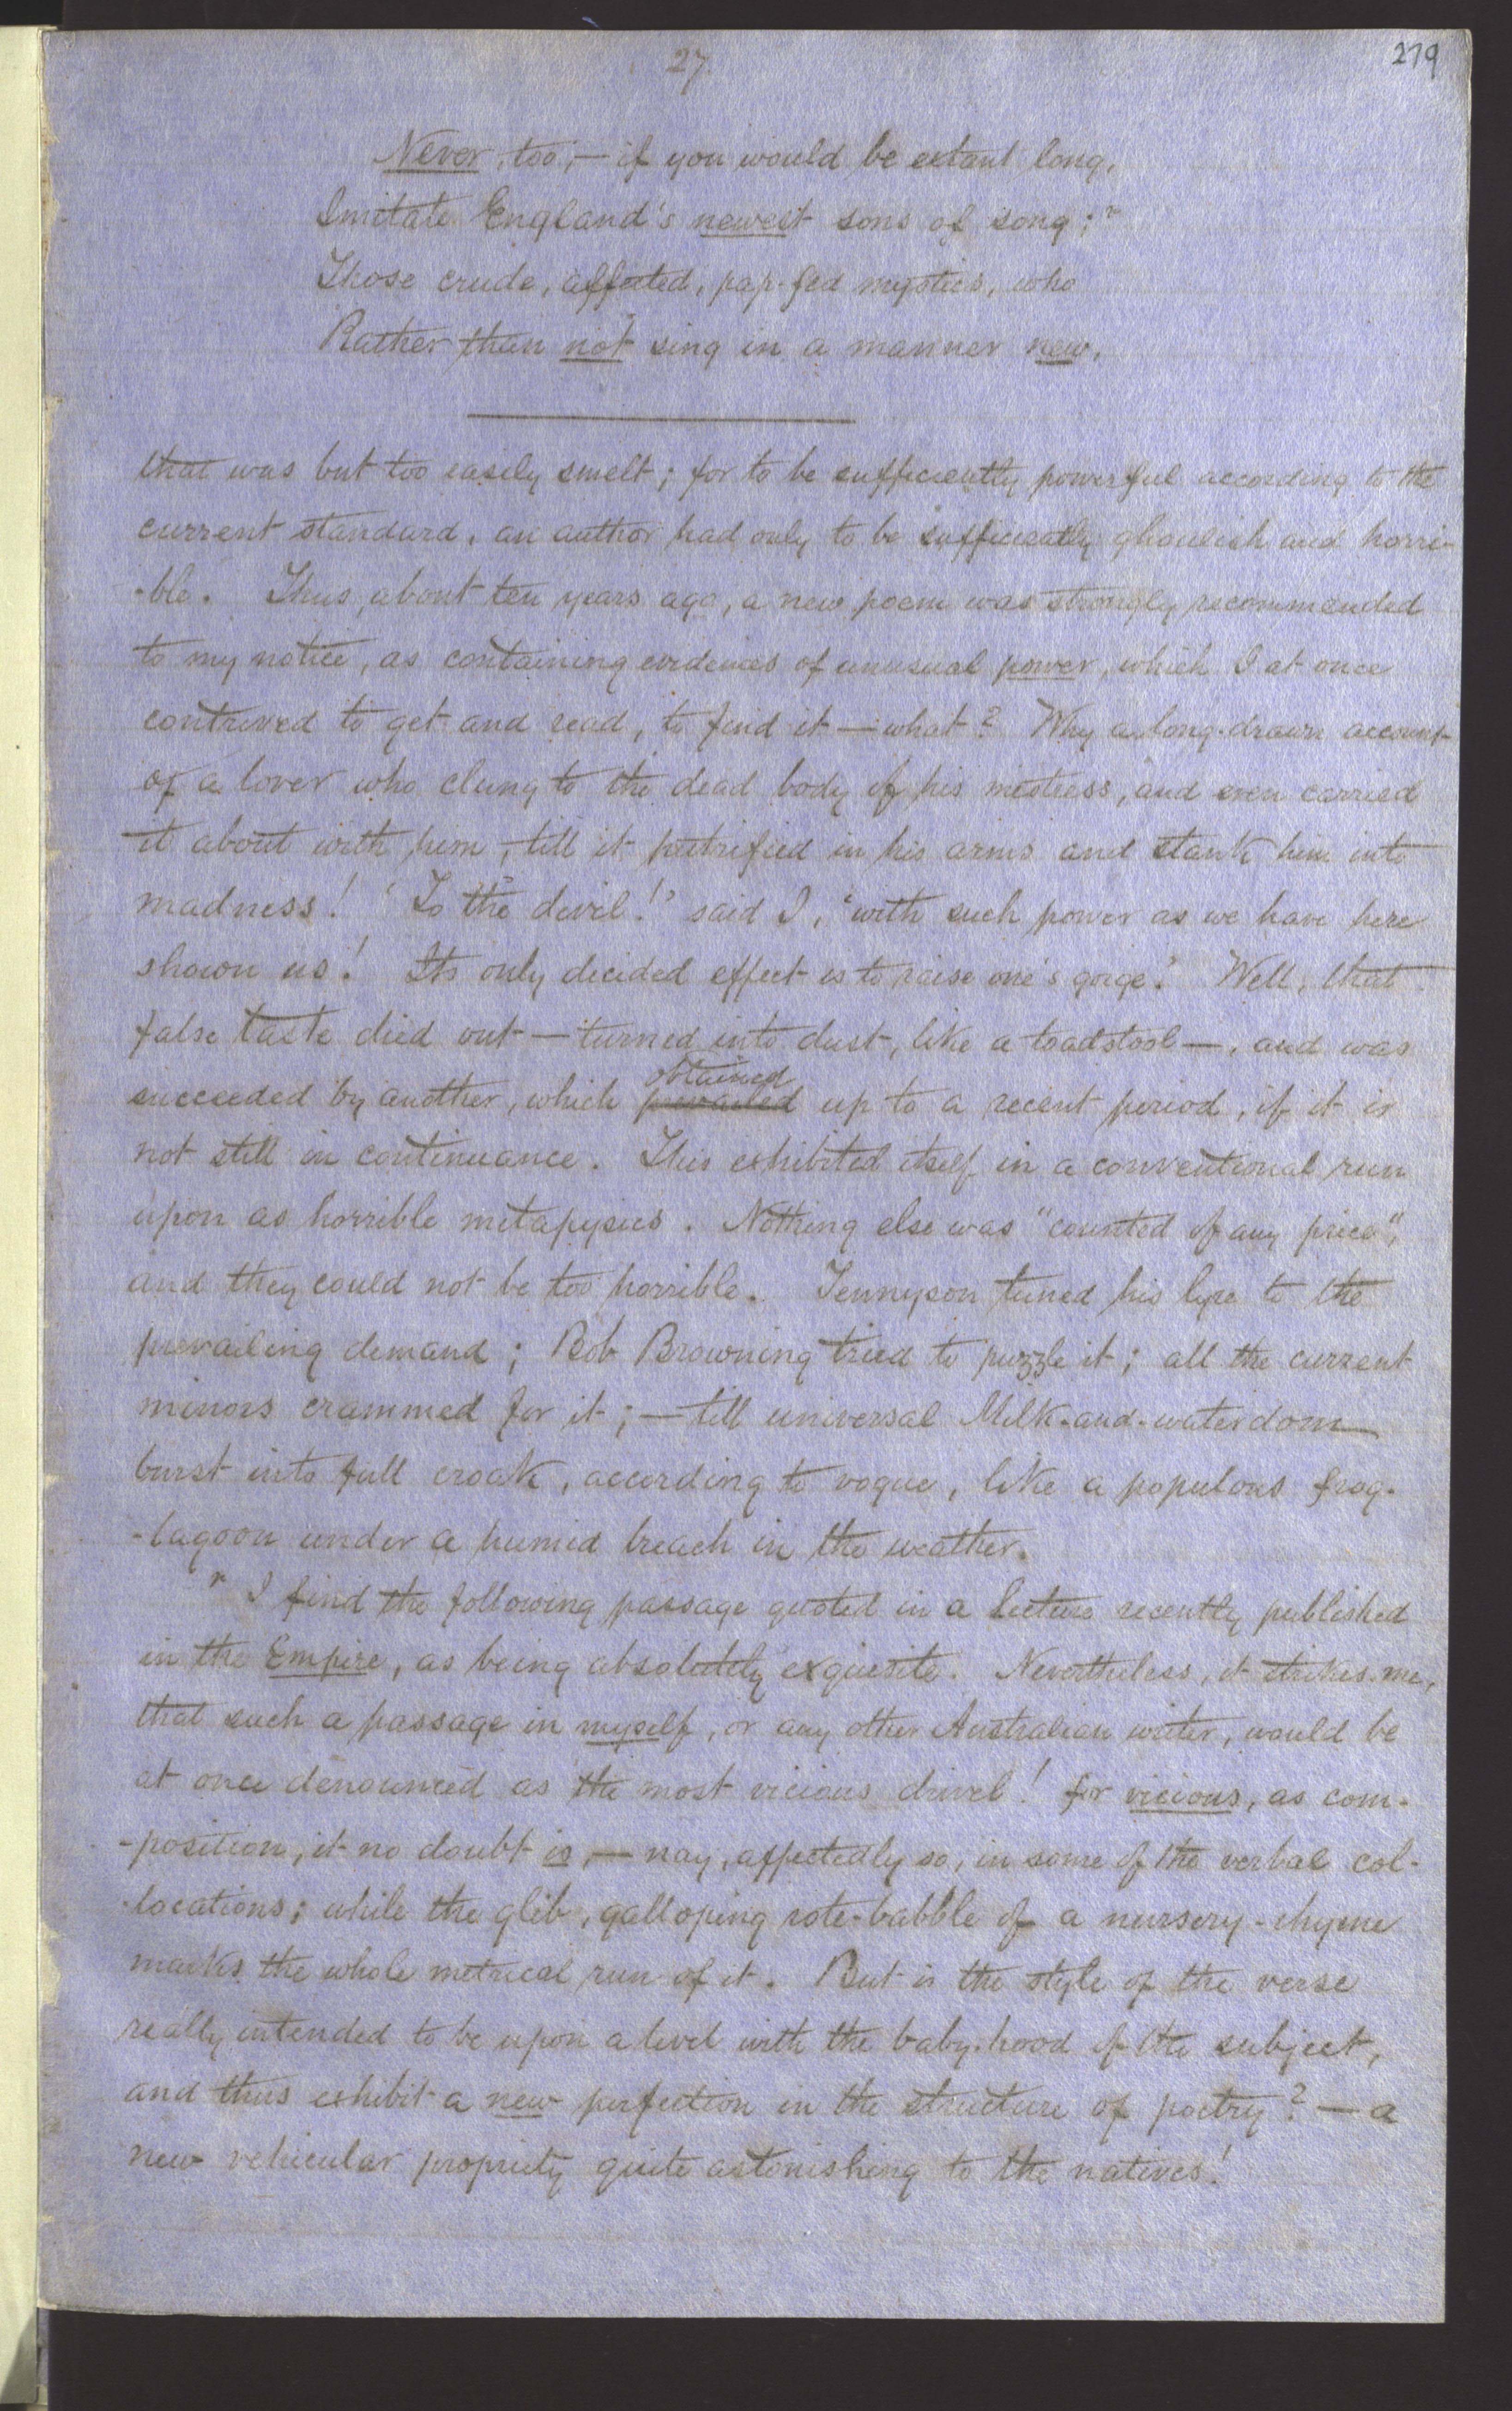 27.
279
Never, too, — if you would be extant long,
Imitate England's newest sons of song;r
Those crude, affected, pap-fed mystics, who
Rather than not sing in a manner new,
that was but too easily smelt; for to be sufficiently powerful according to the
current standard, an author had only to be sufficiently ghoulish and horri-
-ble. Thus, about ten years ago, a new poem was strongly recommended
to my notice, as containing evidences of unusual power, which I at once
contrived to get and read, to find it — what? Why a long-drawn account
of a lover who clung to the dead body of his mistress, and even carried
it about with him, till it putrified in his arms and stank him into
madness! 'To the devil!' said I, 'with such power as we have here
shown us! Its only decided effect is to raise one's gorge.' Well, that
false taste died out — turned into dust, like a toadstool —, and was
obtained
succeeded by another, which prevailed up to a recent period, if it is
not still in continuance. This exhibited itself in a conventional run
upon as horrible metapysics. Nothing else was "counted of any price",
and they could not be too horrible. Tennyson tuned his lyre to the
prevailing demand; Bob Browning tried to puzzle it; all the current
minors crammed for it; — till universal Milk-and-waterdom
burst into full croak, according to vogue, like a populous frog-
-lagoon under a humid breach in the weather.
r I find the following passage quoted in a lecture recently published
in the Empire, as being absolutely exquisite. Nevertheless, it strikes me,
that such a passage in myself, or any other Australian writer, would be
at once denounced as the most vicious drivel! for vicious, as com-
-position, it no doubt is, — nay, affectedly so, in some of the verbal col-
-locations; while the glib, galloping rote-babble of a nursery-rhyme
marks the whole metrical run of it. But is the style of the verse
really intended to be upon a level with the baby-hood of the subject,
and thus exhibit a new perfection in the structure of poetry? — a
new vehicular propriety quite astonishing to the natives!